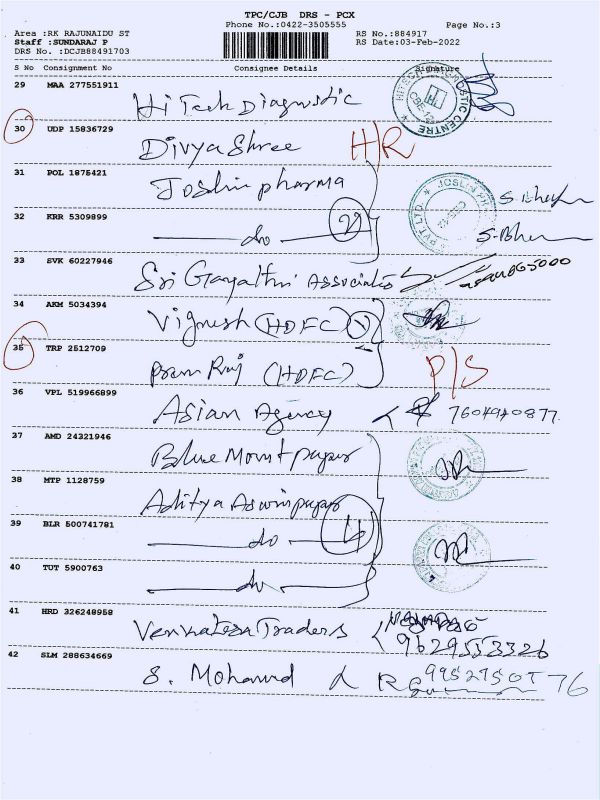 TPC/CJB DRS - PCX
Phone No.:0422-3505555
Page No.:3
Area :RK RAJUNAIDU ST
RS No.:884917
Staff :SUNDARAJ P
RS Date:03-Feb-2022
DRS No. :DCJB88491703
S No Consignment No Consignee Details Signature
29 MAA 277551911
Hi Tech Diagnostic
HITECH DIAGNOSTIC CENTRE
CBE-12
30 UDP 15836729
Divya Shree H/R
31 POL 1875421
Joslin pharma
JOSLIN PVT LTD
32 KRR 5309899
do 2
33 SVK 60227946
Sri Gayathri Associates
34 AKM 5034394
Vignesh (HDFC)
35 TRP 2512709
prem Raj (HDFC) P/S
36 VPL 519966899
Asian Agency
37 AMD 24321946
Blue Mount papers
38 MTP 1128759
Aditya Aswin papers
39 BLR 500741781
do 4
40 TUT 5900763
do
41 HRD 326248958
Venkatesa Traders
9629553326
42 SLM 288634669
S. Mohamed